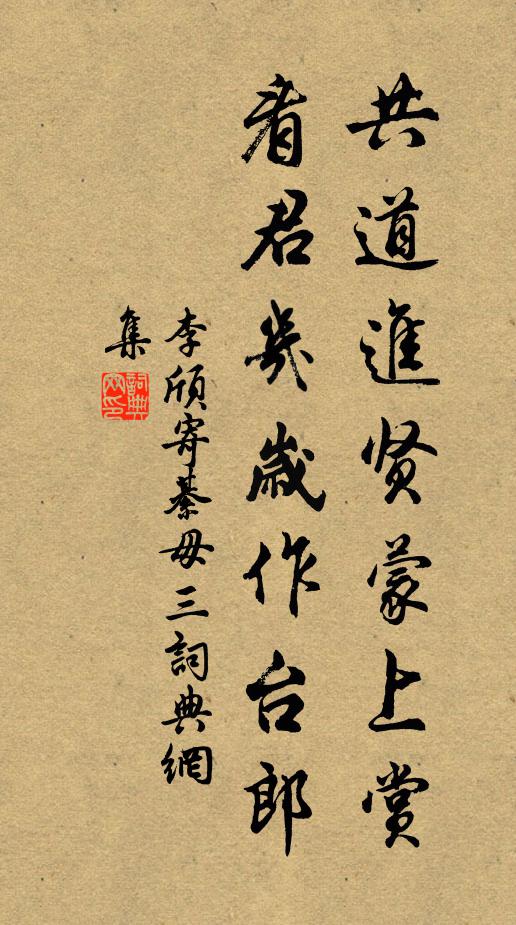 共道進贤蒙上赏
看君幾歲作台郎
李頎寄綦毋三詞典網
集
詞典網印